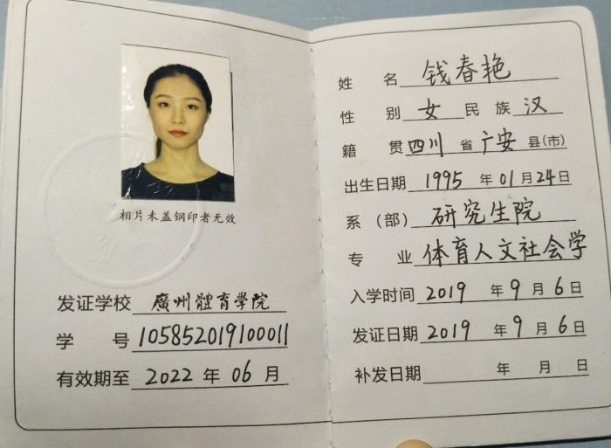 相片未盖钢印者无效
发证学校 廣州體育学院
学 号 105852019100011
有效期至 2022 年 06 月
姓 名 钱春艳
性 别 女 民 族 汉
籍 贯 四川 省 广安 县(市)
出生日期 1995 年 01 月 24 日
系 (部) 研究生院
专 业 体育人文社会学
入学时间 2019 年 9 月 6 日
发证日期 2019 年 9 月 6 日
补发日期 年 月 日